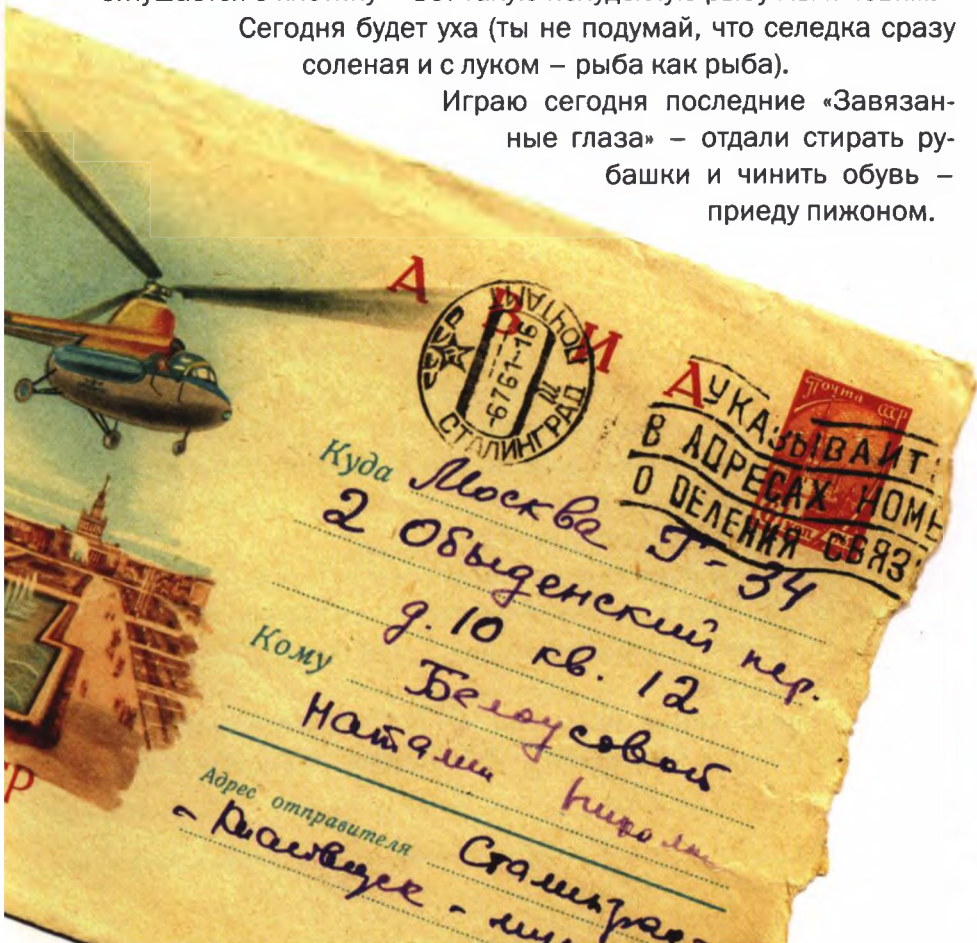 Сегодня будет уха (ты не подумай, что селедка сразу
соленая и с луком – рыба как рыба).
Играю сегодня последние «Завязан-
ные глаза» – отдали стирать ру-
башки и чинить обувь –
приеду пижоном.
А В И А
СССР
ПОЧТАМТ
-6761-16
СТАЛИНГРАД
Почта СССР
УКАЗЫВАЙТ
В АДРЕСАХ НОМЕ
О ДЕЛЕНИЯ СВЯЗ
Куда Москва Г-34
2 Обыденский пер.
д. 10 кв. 12
Кому Белоусовой
Наталии
Адрес отправителя Сталинград